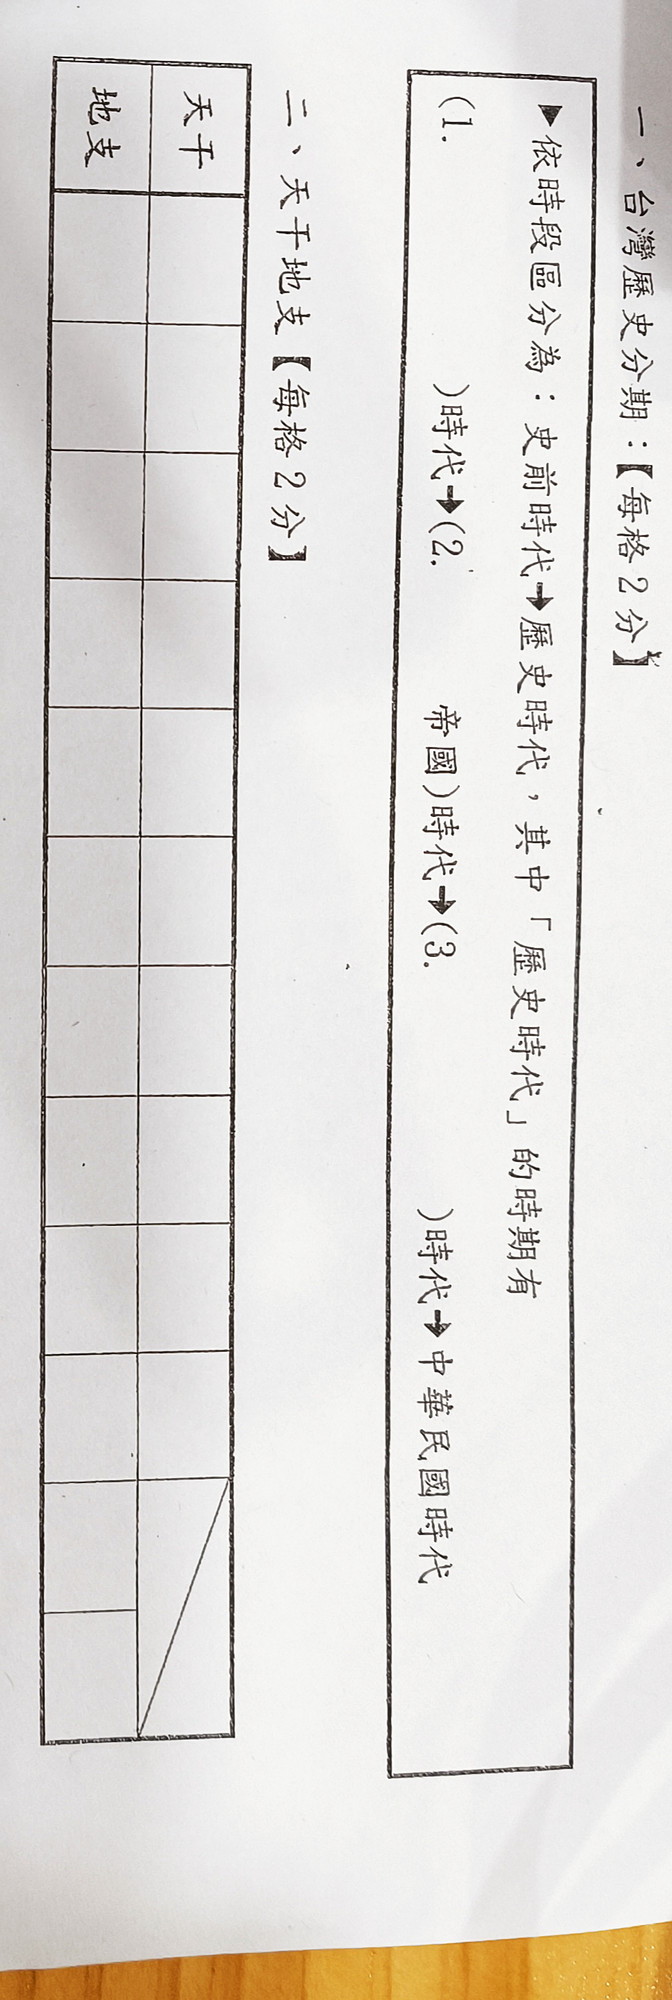 一、台灣歷史分期：【每格2分】
▶依時段區分為：史前時代➔歷史時代，其中「歷史時代」的時期有
(1. )時代➔(2. 帝國)時代➔(3. )時代➔中華民國時代
二、天干地支【每格2分】
天干
地支